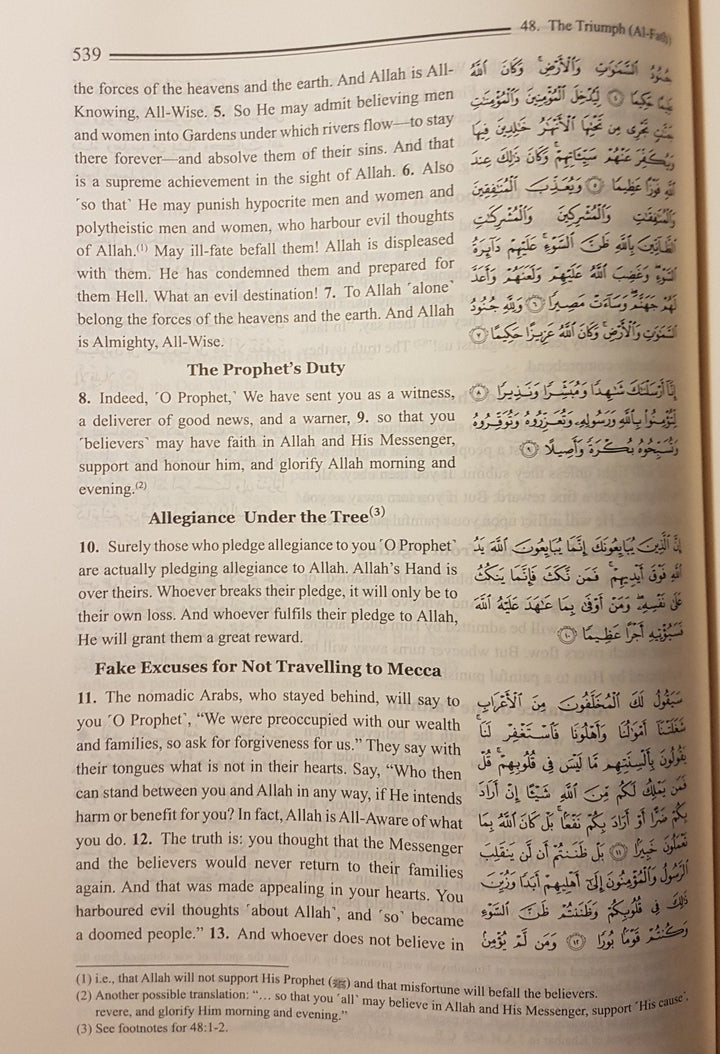 539
48. The Triumph (Al-Fatḥ)
the forces of the heavens and the earth. And Allah is All-
Knowing, All-Wise. 5. So He may admit believing men
and women into Gardens under which rivers flow—to stay
there forever—and absolve them of their sins. And that
is a supreme achievement in the sight of Allah. 6. Also
˹so that˺ He may punish hypocrite men and women and
polytheistic men and women, who harbour evil thoughts
of Allah.(1) May ill-fate befall them! Allah is displeased
with them. He has condemned them and prepared for
them Hell. What an evil destination! 7. To Allah ˹alone˺
belong the forces of the heavens and the earth. And Allah
is Almighty, All-Wise.
جُنُودُ السَّمَٰوَٰتِ وَالْأَرْضِ ۚ وَكَانَ اللَّهُ
عَلِيمًا حَكِيمًا ٤ لِّيُدْخِلَ الْمُؤْمِنِينَ وَالْمُؤْمِنَٰتِ
جَنَّٰتٍ تَجْرِى مِن تَحْتِهَا الْأَنْهَٰرُ خَٰلِدِينَ فِيهَا
وَيُكَفِّرَ عَنْهُمْ سَيِّـَٔاتِهِمْ ۚ وَكَانَ ذَٰلِكَ عِندَ
اللَّهِ فَوْزًا عَظِيمًا ٥ وَيُعَذِّبَ الْمُنَٰفِقِينَ
وَالْمُنَٰفِقَٰتِ وَالْمُشْرِكِينَ وَالْمُشْرِكَٰتِ
الظَّآنِّينَ بِاللَّهِ ظَنَّ السَّوْءِ ۚ عَلَيْهِمْ دَآئِرَةُ
السَّوْءِ ۖ وَغَضِبَ اللَّهُ عَلَيْهِمْ وَلَعَنَهُمْ وَأَعَدَّ
لَهُمْ جَهَنَّمَ ۖ وَسَآءَتْ مَصِيرًا ٦ وَلِلَّهِ جُنُودُ
السَّمَٰوَٰتِ وَالْأَرْضِ ۚ وَكَانَ اللَّهُ عَزِيزًا حَكِيمًا ٧
The Prophet's Duty
8. Indeed, ˹O Prophet,˺ We have sent you as a witness,
a deliverer of good news, and a warner, 9. so that you
˹believers˺ may have faith in Allah and His Messenger,
support and honour him, and glorify Allah morning and
evening.(2)
إِنَّآ أَرْسَلْنَٰكَ شَٰهِدًا وَمُبَشِّرًا وَنَذِيرًا ٨
لِّتُؤْمِنُوا۟ بِاللَّهِ وَرَسُولِهِۦ وَتُعَزِّرُوهُ وَتُوَقِّرُوهُ
وَتُسَبِّحُوهُ بُكْرَةً وَأَصِيلًا ٩
Allegiance Under the Tree(3)
10. Surely those who pledge allegiance to you ˹O Prophet˺
are actually pledging allegiance to Allah. Allah's Hand is
over theirs. Whoever breaks their pledge, it will only be to
their own loss. And whoever fulfils their pledge to Allah,
He will grant them a great reward.
إِنَّ الَّذِينَ يُبَايِعُونَكَ إِنَّمَا يُبَايِعُونَ اللَّهَ يَدُ
اللَّهِ فَوْقَ أَيْدِيهِمْ ۚ فَمَن نَّكَثَ فَإِنَّمَا يَنكُثُ
عَلَىٰ نَفْسِهِۦ ۖ وَمَنْ أَوْفَىٰ بِمَا عَٰهَدَ عَلَيْهُ اللَّهَ
فَسَيُؤْتِيهِ أَجْرًا عَظِيمًا ١٠
Fake Excuses for Not Travelling to Mecca
11. The nomadic Arabs, who stayed behind, will say to
you ˹O Prophet˺, “We were preoccupied with our wealth
and families, so ask for forgiveness for us.” They say with
their tongues what is not in their hearts. Say, “Who then
can stand between you and Allah in any way, if He intends
harm or benefit for you? In fact, Allah is All-Aware of what
you do. 12. The truth is: you thought that the Messenger
and the believers would never return to their families
again. And that was made appealing in your hearts. You
harboured evil thoughts ˹about Allah˺, and ˹so˺ became
a doomed people.” 13. And whoever does not believe in
سَيَقُولُ لَكَ الْمُخَلَّفُونَ مِنَ الْأَعْرَابِ
شَغَلَتْنَآ أَمْوَٰلُنَا وَأَهْلُونَا فَاسْتَغْفِرْ لَنَا ۚ
يَقُولُونَ بِأَلْسِنَتِهِم مَّا لَيْسَ فِى قُلُوبِهِمْ ۚ قُلْ
فَمَن يَمْلِكُ لَكُم مِّنَ اللَّهِ شَيْـًٔا إِنْ أَرَادَ
بِكُمْ ضَرًّا أَوْ أَرَادَ بِكُمْ نَفْعًۢا ۚ بَلْ كَانَ اللَّهُ بِمَا
تَعْمَلُونَ خَبِيرًۢا ١١ بَلْ ظَنَنتُمْ أَن لَّن يَنقَلِبَ
الرَّسُولُ وَالْمُؤْمِنُونَ إِلَىٰٓ أَهْلِيهِمْ أَبَدًا وَزُيِّنَ
ذَٰلِكَ فِى قُلُوبِكُمْ وَظَنَنتُمْ ظَنَّ السَّوْءِ
وَكُنتُمْ قَوْمًۢا بُورًا ١٢ وَمَن لَّمْ يُؤْمِنۢ
(1) i.e., that Allah will not support His Prophet (ﷺ) and that misfortune will befall the believers.
(2) Another possible translation: “… so that you ˹all˺ may believe in Allah and His Messenger, support ˹His cause˺,
revere, and glorify Him morning and evening.”
(3) See footnotes for 48:1-2.